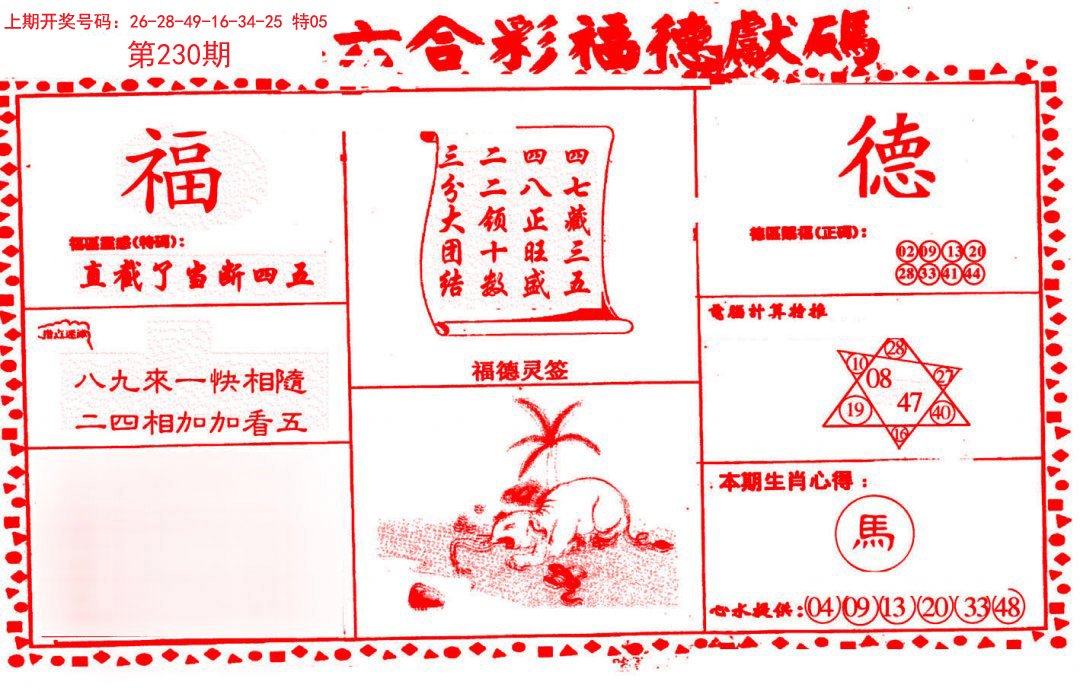 上期开奖号码：26-28-49-16-34-25 特05
第230期
六合彩福德獻碼
福
福區靈感(特碼)：
直截了当断四五
指点迷津
八九來一快相隨
二四相加加看五
四七藏三五
四八正旺盛
二二领十数
三分大团结
福德灵签
德
德區賜福(正碼)：
02 09 13 20
28 33 41 44
電腦計算粉推
28
10
27
08
47
19
40
16
本期生肖心得：
馬
心水提供：04 09 13 20 33 48